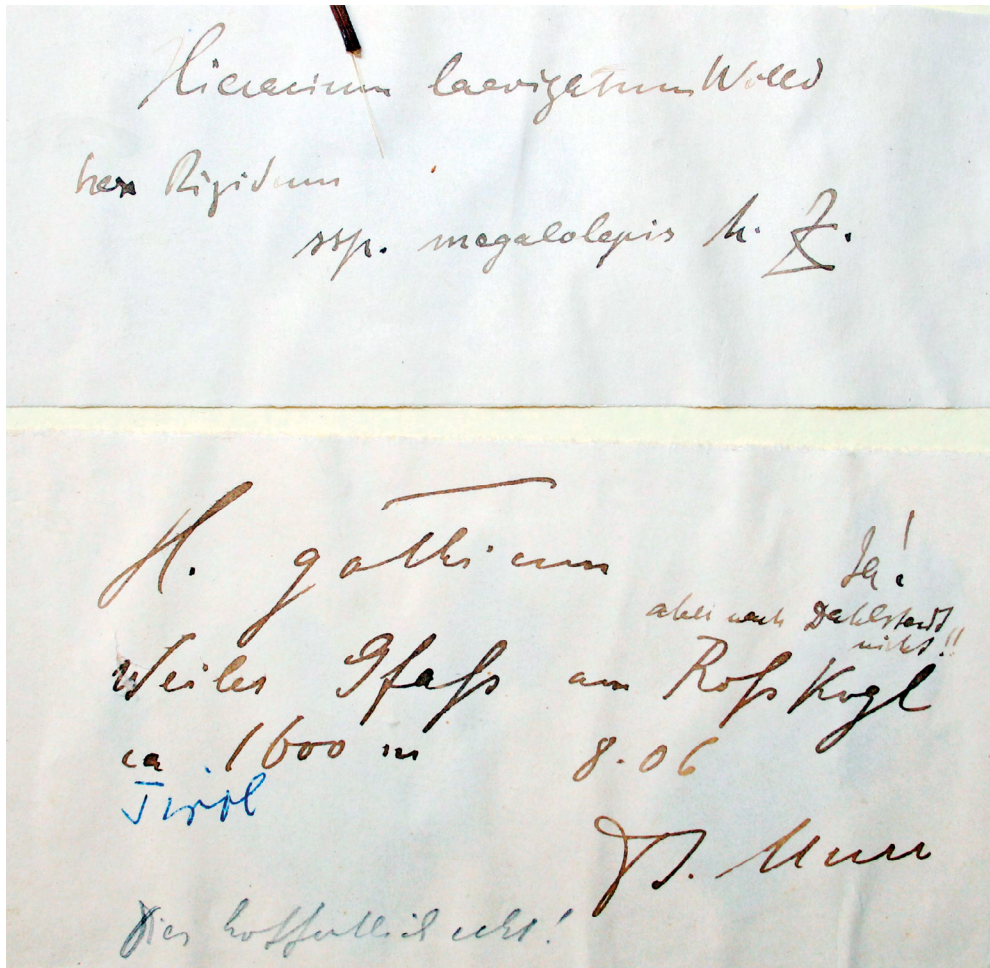 Hieracium laevigatum Willd
Rigidum
ssp. megalolepis h. Z.
H. gothicum
Ja!
aber nach Dahlstedt
nicht!!
Weiler Gfaß am Roßkogl
ca 1600 m 8.06
Tirol
J. Murr
Dies hoffentlich echt!